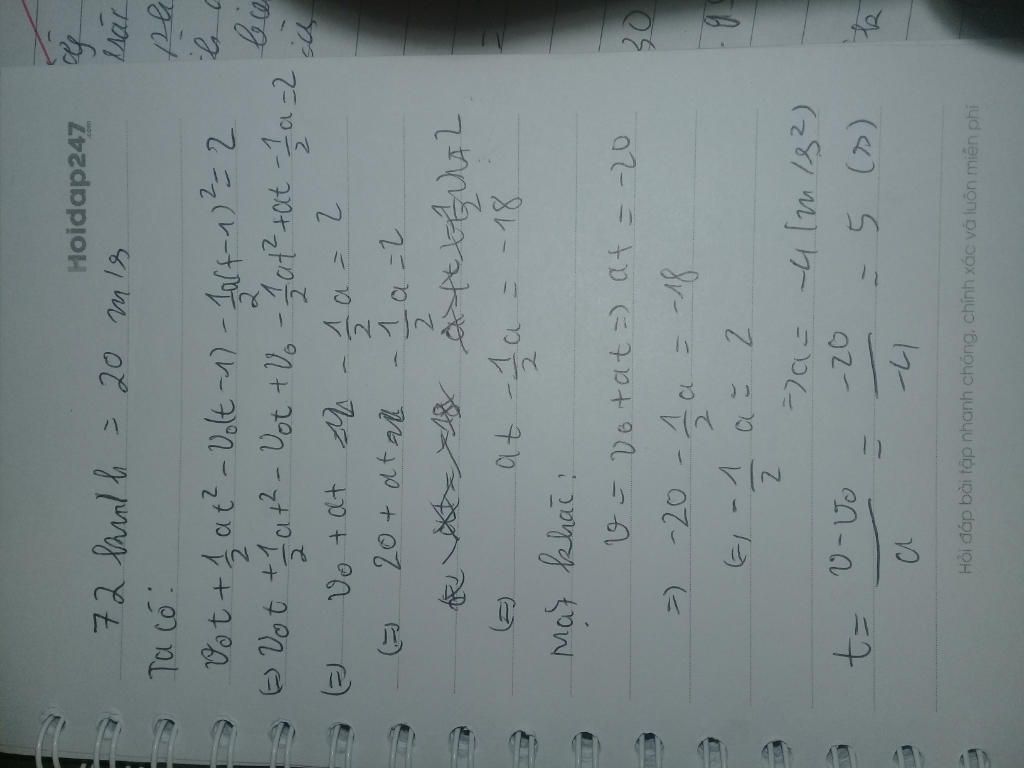 Hoidap247
.com
72 km/h = 20 m/s
Ta có:
v₀t + 1/2 at² - v₀(t-1) - 1/2 a(t-1)² = 2
(=) v₀t + 1/2 at² - v₀t + v₀ - 1/2 at² + at - 1/2 a = 2
(=) v₀ + at - 1/2 a = 2
(=) 20 + at - 1/2 a = 2
(=) at - 1/2 a = -18
Mặt khác:
v = v₀ + at => at = -20
=) -20 - 1/2 a = -18
(=) -1/2 a = 2
=> a = -4 (m/s²)
t = v-v₀/a = -20/-4 = 5 (s)
Hỏi đáp bài tập nhanh chóng, chính xác và luôn miễn phí
30